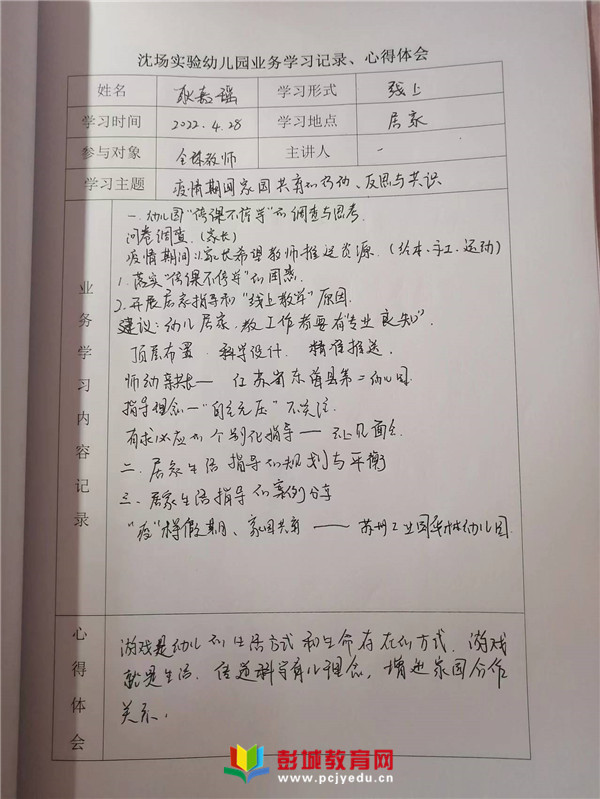 沈场实验幼儿园业务学习记录、心得体会
姓名 学习形式 线上
学习时间 2022.4.28 学习地点 居家
参与对象 全体教师 主讲人 -
学习主题 疫情期间家园共育的行动、反思与共识
业务学习内容记录
一.幼儿园“停课不停学”的调查与思考.
问卷调查.(家长)
疫情期间:家长希望教师推送资源.(绘本、手工、运动)
1.落实“停课不停学”的困惑.
2.开展居家指导和“线上教学”原因.
建议:幼儿居家.教工作者要有“专业良知”.
顶层布置 科学设计. 精准推送.
师幼亲共长— 江苏省东 县第二幼儿园.
指导理念— 不关注.
有求必应的个别化指导——云上见面会.
二.居家生活指导的规划与平衡
三.居家生活指导的案例分享
“疫”样假期、家园共育 —— 苏州工业园 幼儿园.
心得体会
游戏是幼儿的生活方式和生命存在的方式.游戏
就是生活.传递科学育儿理念,增进家园合作
关系.
彭城教育网
www.pcjyedu.cn